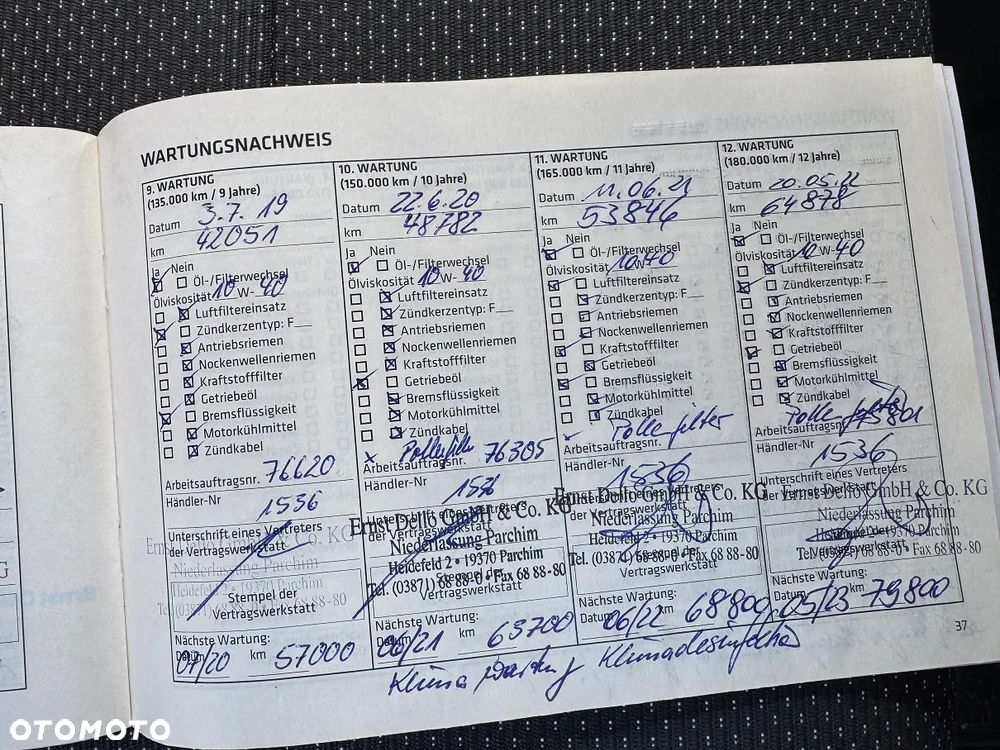 WARTUNGSNACHWEIS
9. WARTUNG
(135.000 km / 9 Jahre)
Datum 3.7.19
km 42051
Ja Nein
Öl-/Filterwechsel
Ölviskosität 10 W- 40
Luftfiltereinsatz
Zündkerzentyp: F__
Antriebsriemen
Nockenwellenriemen
Kraftstofffilter
Getriebeöl
Bremsflüssigkeit
Motorkühlmittel
Zündkabel
Arbeitsauftragsnr. 76620
Händler-Nr
1536
Unterschrift eines Vertreters
der Vertragswerkstatt
Ernst Dello GmbH & Co. KG
Niederlassung Parchim
Heidefeld 2 • 19370 Parchim
Tel. (03871) 68 88-0 • Fax 68 88-80
Stempel der
Vertragswerkstatt
Nächste Wartung:
Datum 07/20 km 57000
10. WARTUNG
(150.000 km / 10 Jahre)
Datum 22.6.20
km 48782
Ja Nein
Öl-/Filterwechsel
Ölviskosität 10 W- 40
Luftfiltereinsatz
Zündkerzentyp: F__
Antriebsriemen
Nockenwellenriemen
Kraftstofffilter
Getriebeöl
Bremsflüssigkeit
Motorkühlmittel
Zündkabel
x Pollenfilter
Arbeitsauftragsnr. 76305
Händler-Nr
1536
Unterschrift eines Vertreters
der Vertragswerkstatt
Ernst Dello GmbH & Co. KG
Niederlassung Parchim
Heidefeld 2 • 19370 Parchim
Tel. (03871) 68 88-0 • Fax 68 88-80
Stempel der
Vertragswerkstatt
Nächste Wartung:
Datum 06/21 km 63700
11. WARTUNG
(165.000 km / 11 Jahre)
Datum 11.06.21
km 53846
Ja Nein
Öl-/Filterwechsel
Ölviskosität 10 W- 40
Luftfiltereinsatz
Zündkerzentyp: F__
Antriebsriemen
Nockenwellenriemen
Kraftstofffilter
Getriebeöl
Bremsflüssigkeit
Motorkühlmittel
Zündkabel
Pollenfilter
Arbeitsauftragsnr.
Händler-Nr
1536
Unterschrift eines Vertreters
der Vertragswerkstatt
Ernst Dello GmbH & Co. KG
Niederlassung Parchim
Heidefeld 2 • 19370 Parchim
Tel. (03871) 68 88-0 • Fax 68 88-80
Stempel der
Vertragswerkstatt
Nächste Wartung:
Datum 06/22 km 68800
12. WARTUNG
(180.000 km / 12 Jahre)
Datum 20.05.22
km 64878
Ja Nein
Öl-/Filterwechsel
Ölviskosität 10 W- 40
Luftfiltereinsatz
Zündkerzentyp: F__
Antriebsriemen
Nockenwellenriemen
Kraftstofffilter
Getriebeöl
Bremsflüssigkeit
Motorkühlmittel
Zündkabel
Pollenfilter
Arbeitsauftragsnr.
Händler-Nr
1536
Unterschrift eines Vertreters
der Vertragswerkstatt
Ernst Dello GmbH & Co. KG
Niederlassung Parchim
Heidefeld 2 • 19370 Parchim
Tel. (03871) 68 88-0 • Fax 68 88-80
Stempel der
Vertragswerkstatt
Nächste Wartung:
Datum 05/23 km 79800
Klima Wartung
37
OTOMOTO